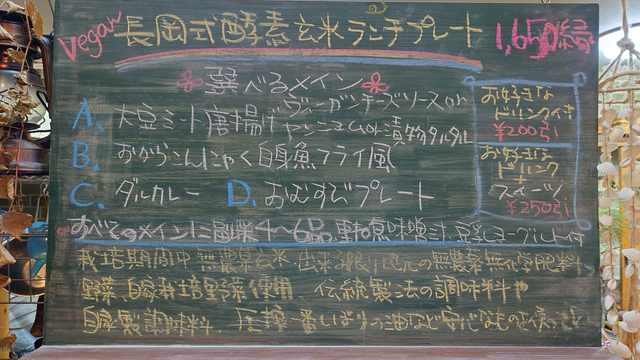 Vegan 長岡式酵素玄米ランチプレート 1,650縁
選べるメイン
A. 大豆ミート唐揚げ ヴィーガンチーズソース or
ヤンニョム or 漬物タルタル
B. おからこんにゃく白身魚フライ風
C. ダルカレー D. おむすびプレート
お好きな
ドリンク付
¥200引
お好きな
ドリンク
スイーツ
¥250引
すべてのメインに副菜4〜6品、野草味噌汁、豆乳ヨーグルト付
栽培期間中無農薬玄米 出来る限り地元の無農薬無化学肥料
野菜、自家栽培野菜使用 伝統製法の調味料や
自家製調味料、圧搾一番しぼりの油など安心なものを使って